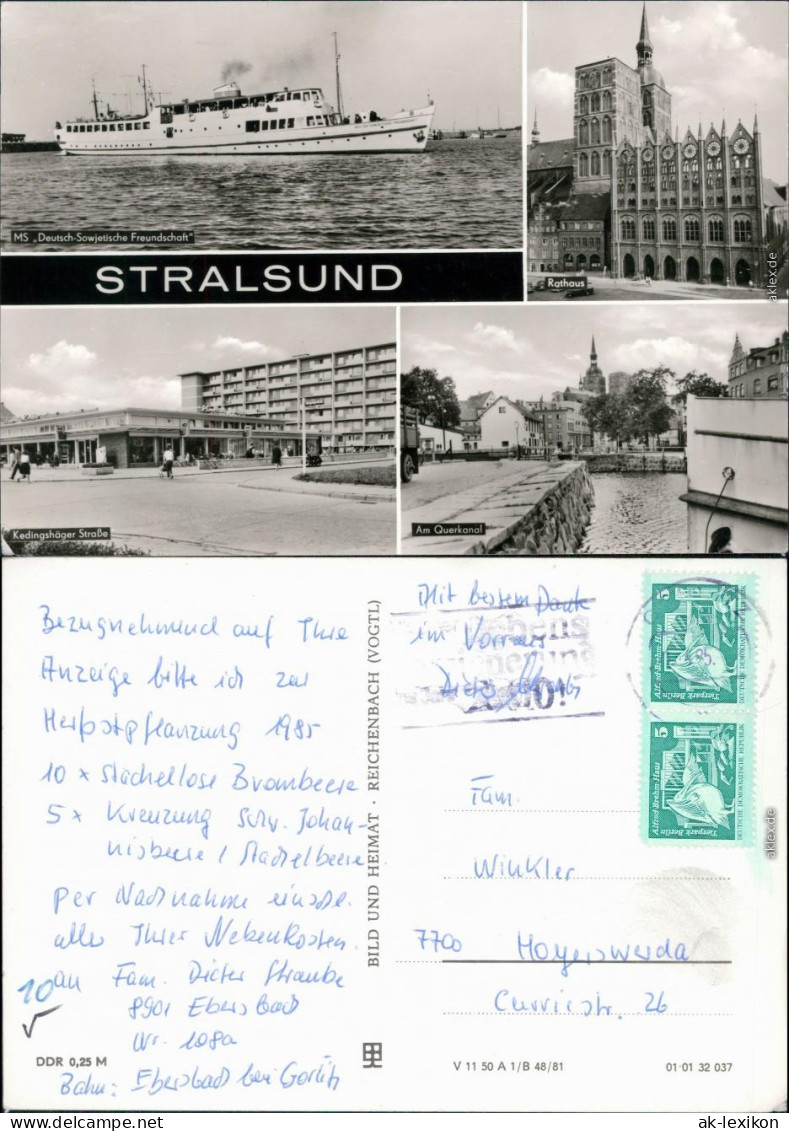 MS „Deutsch-Sowjetische Freundschaft"
Rathaus
aklex.de
STRALSUND
Kedingshäger Straße
Am Querkanal
Bezugnehmend auf Ihre
Anzeige bitte ich zur
Herbstpflanzung 1985
10 x stachellose Brombeere
5 x Kreuzung Schw. Johan-
nisbeere / Stachelbeere
per Nachnahme einschl.
aller Ihrer Nebenkosten
an Fam. Dieter Straube
8901 Ebersbach
Nr. 108a
Bahn: Ebersbach bei Görlitz
10
DDR 0,25 M
BILD UND HEIMAT · REICHENBACH (VOGTL)
Mit bestem Dank
im Vorraus
Fam.
Winkler
7700 Hoyerswerda
Curiestr. 26
5
Alfred Brehm Haus
Tierpark Berlin
DEUTSCHE DEMOKRATISCHE REPUBLIK
5
Alfred Brehm Haus
Tierpark Berlin
DEUTSCHE DEMOKRATISCHE REPUBLIK
aklex.de
V 11 50 A 1/B 48/81
01·01 32 037
www.ak-ansichtskarten.de
ak-lexikon